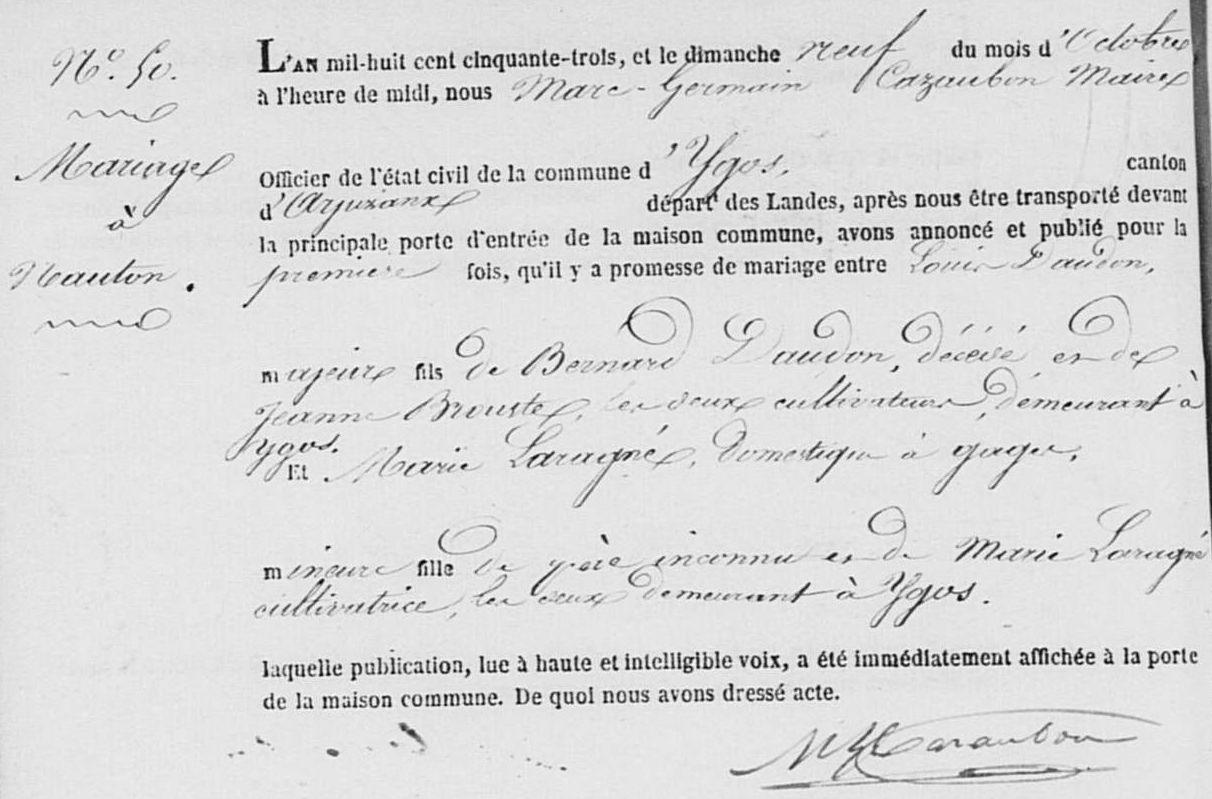 N.º 50.
Mariage
à
Nauton.
L'AN mil-huit cent cinquante-trois, et le dimanche neuf du mois d'Octobre
à l'heure de midi, nous Marc-Germain Cazaubon Maire
Officier de l'état civil de la commune d'Ygos, canton
d'Arjuzanx départ.t des Landes, après nous être transporté devant
la principale porte d'entrée de la maison commune, avons annoncé et publié pour la
première fois, qu'il y a promesse de mariage entre Louis Daudon,
majeur fils de Bernard Daudon, décédé et de
Jeanne Brouste, les deux cultivateurs, demeurant à
Ygos.
Et Marie Laragné, domestique à gages,
mineure fille de père inconnu et de Marie Laragné
cultivatrice, les deux demeurant à Ygos.
laquelle publication, lue à haute et intelligible voix, a été immédiatement affichée à la porte
de la maison commune. De quoi nous avons dressé acte.
Cazaubon